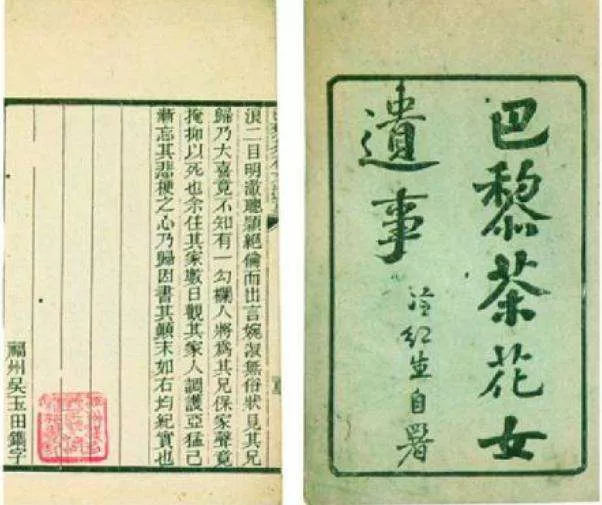 巴黎茶花女
遺事
冷紅生自署
浪二目明澈聰頴絕倫而出言婉淑無俗狀見其兄
歸乃大喜竟不知有一勾欄人將爲其兄保家聲竟
掩抑以死也余住其家數日觀其家人調護亞猛已
漸忘其悲梗之心乃歸因書其顛末如右均紀實也
福州吳玉田鐫字